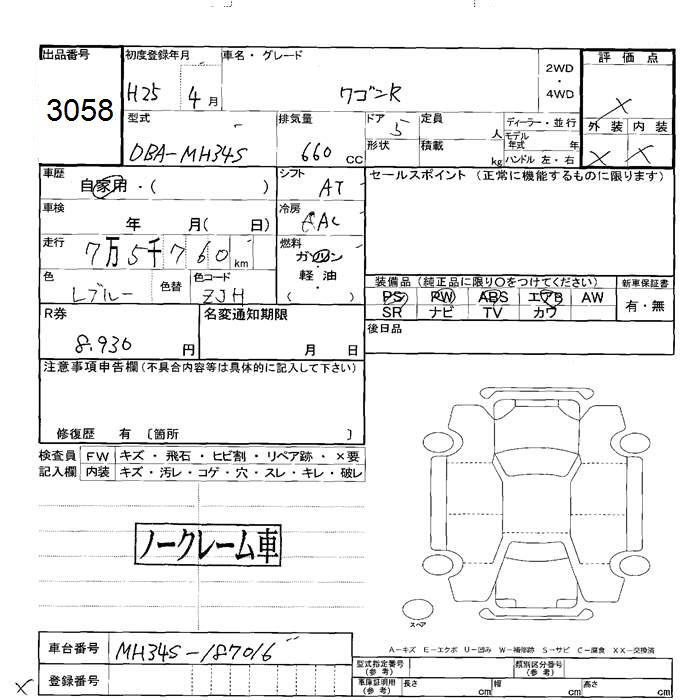 出品番号 初度登録年月 車名・グレード 2WD ・ 4WD 評価点
3058 H25 4月 ワゴンR ×
型式 排気量 ドア 定員 ディーラー・並行 外装 内装
DBA-MH34S 660 CC 5 人 モデル年式 年 × ×
形状 積載 kg ハンドル 左・右
車歴 自家用・( ) シフト AT セールスポイント(正常に機能するものに限ります)
車検 年 月( 日) 冷房 AAC
走行 7万5千760km 燃料 ガソリン・軽油 ( )
色 Lブルー 色替 色コード ZJH
装備品(純正品に限り〇をつけてください) 新車保証書
PS PW ABS エアB AW 有・無
SR ナビ TV カワ
R券 8,930 円 名変通知期限 月 日 後日品
注意事項申告欄(不具合内容等は具体的に記入して下さい)
修復歴 有 〔箇所 〕
検査員 FW キズ・飛石・ヒビ割・リペア跡・×要
記入欄 内装 キズ・汚レ・コゲ・穴・スレ・キレ・破レ
ノークレーム車
スペア
A-キズ E-エクボ U-凹み W-補修跡 S-サビ C-腐食 XX-交換済
車台番号 MH34S-187016
型式指定番号(参考) 類別区分番号(参考)
× 登録番号
車庫証明用(参考) 長さ cm 幅 cm 高さ cm